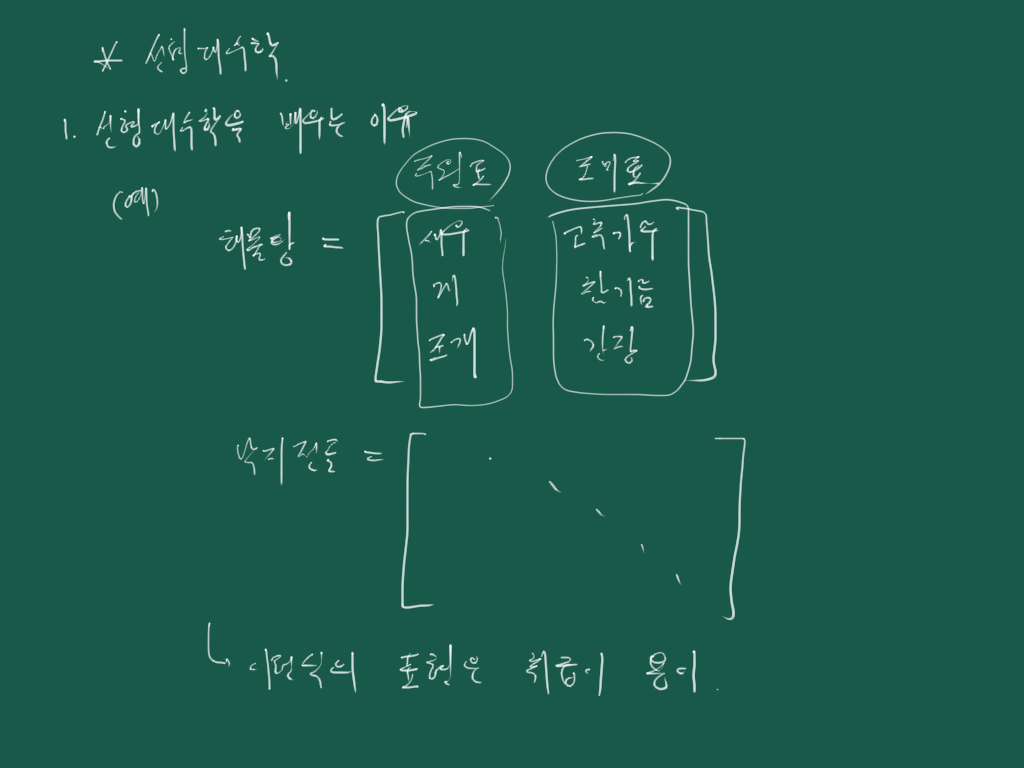 * 선형대수학.
1. 선형대수학을 배우는 이유
(예)
주원료 조미료
해물탕 = [ 새우 고추가루 ]
게 참기름
조개 간장
낙지전골 = [ ⋱ ]
↳ 이런식의 표현은 취급이 용이.